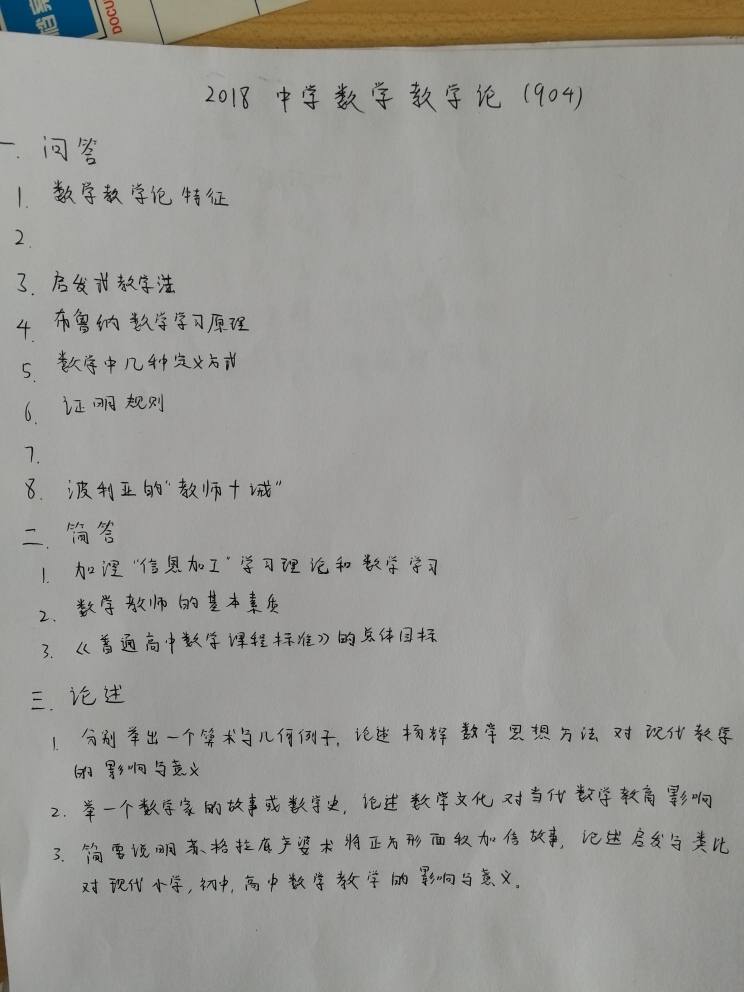 DOCU
2018 中学数学教学论 (904)
一. 问答
1. 数学教学论特征
2.
3. 启发式教学法
4. 布鲁纳数学学习原理
5. 数学中几种定义方式
6. 证明规则
7.
8. 波利亚的“教师十诫”
二. 简答
1. 加涅“信息加工”学习理论和数学学习
2. 数学教师的基本素质
3. 《普通高中数学课程标准》的总体目标
三. 论述
1. 分别举出一个算术与几何例子, 论述杨辉数学思想方法对现代数学
的影响与意义
2. 举一个数学家的故事或数学史, 论述数学文化对当代数学教育影响
3. 简要说明苏格拉底产婆术将正方形面积加倍故事, 论述启发与类比
对现代小学, 初中, 高中数学教学的影响与意义。